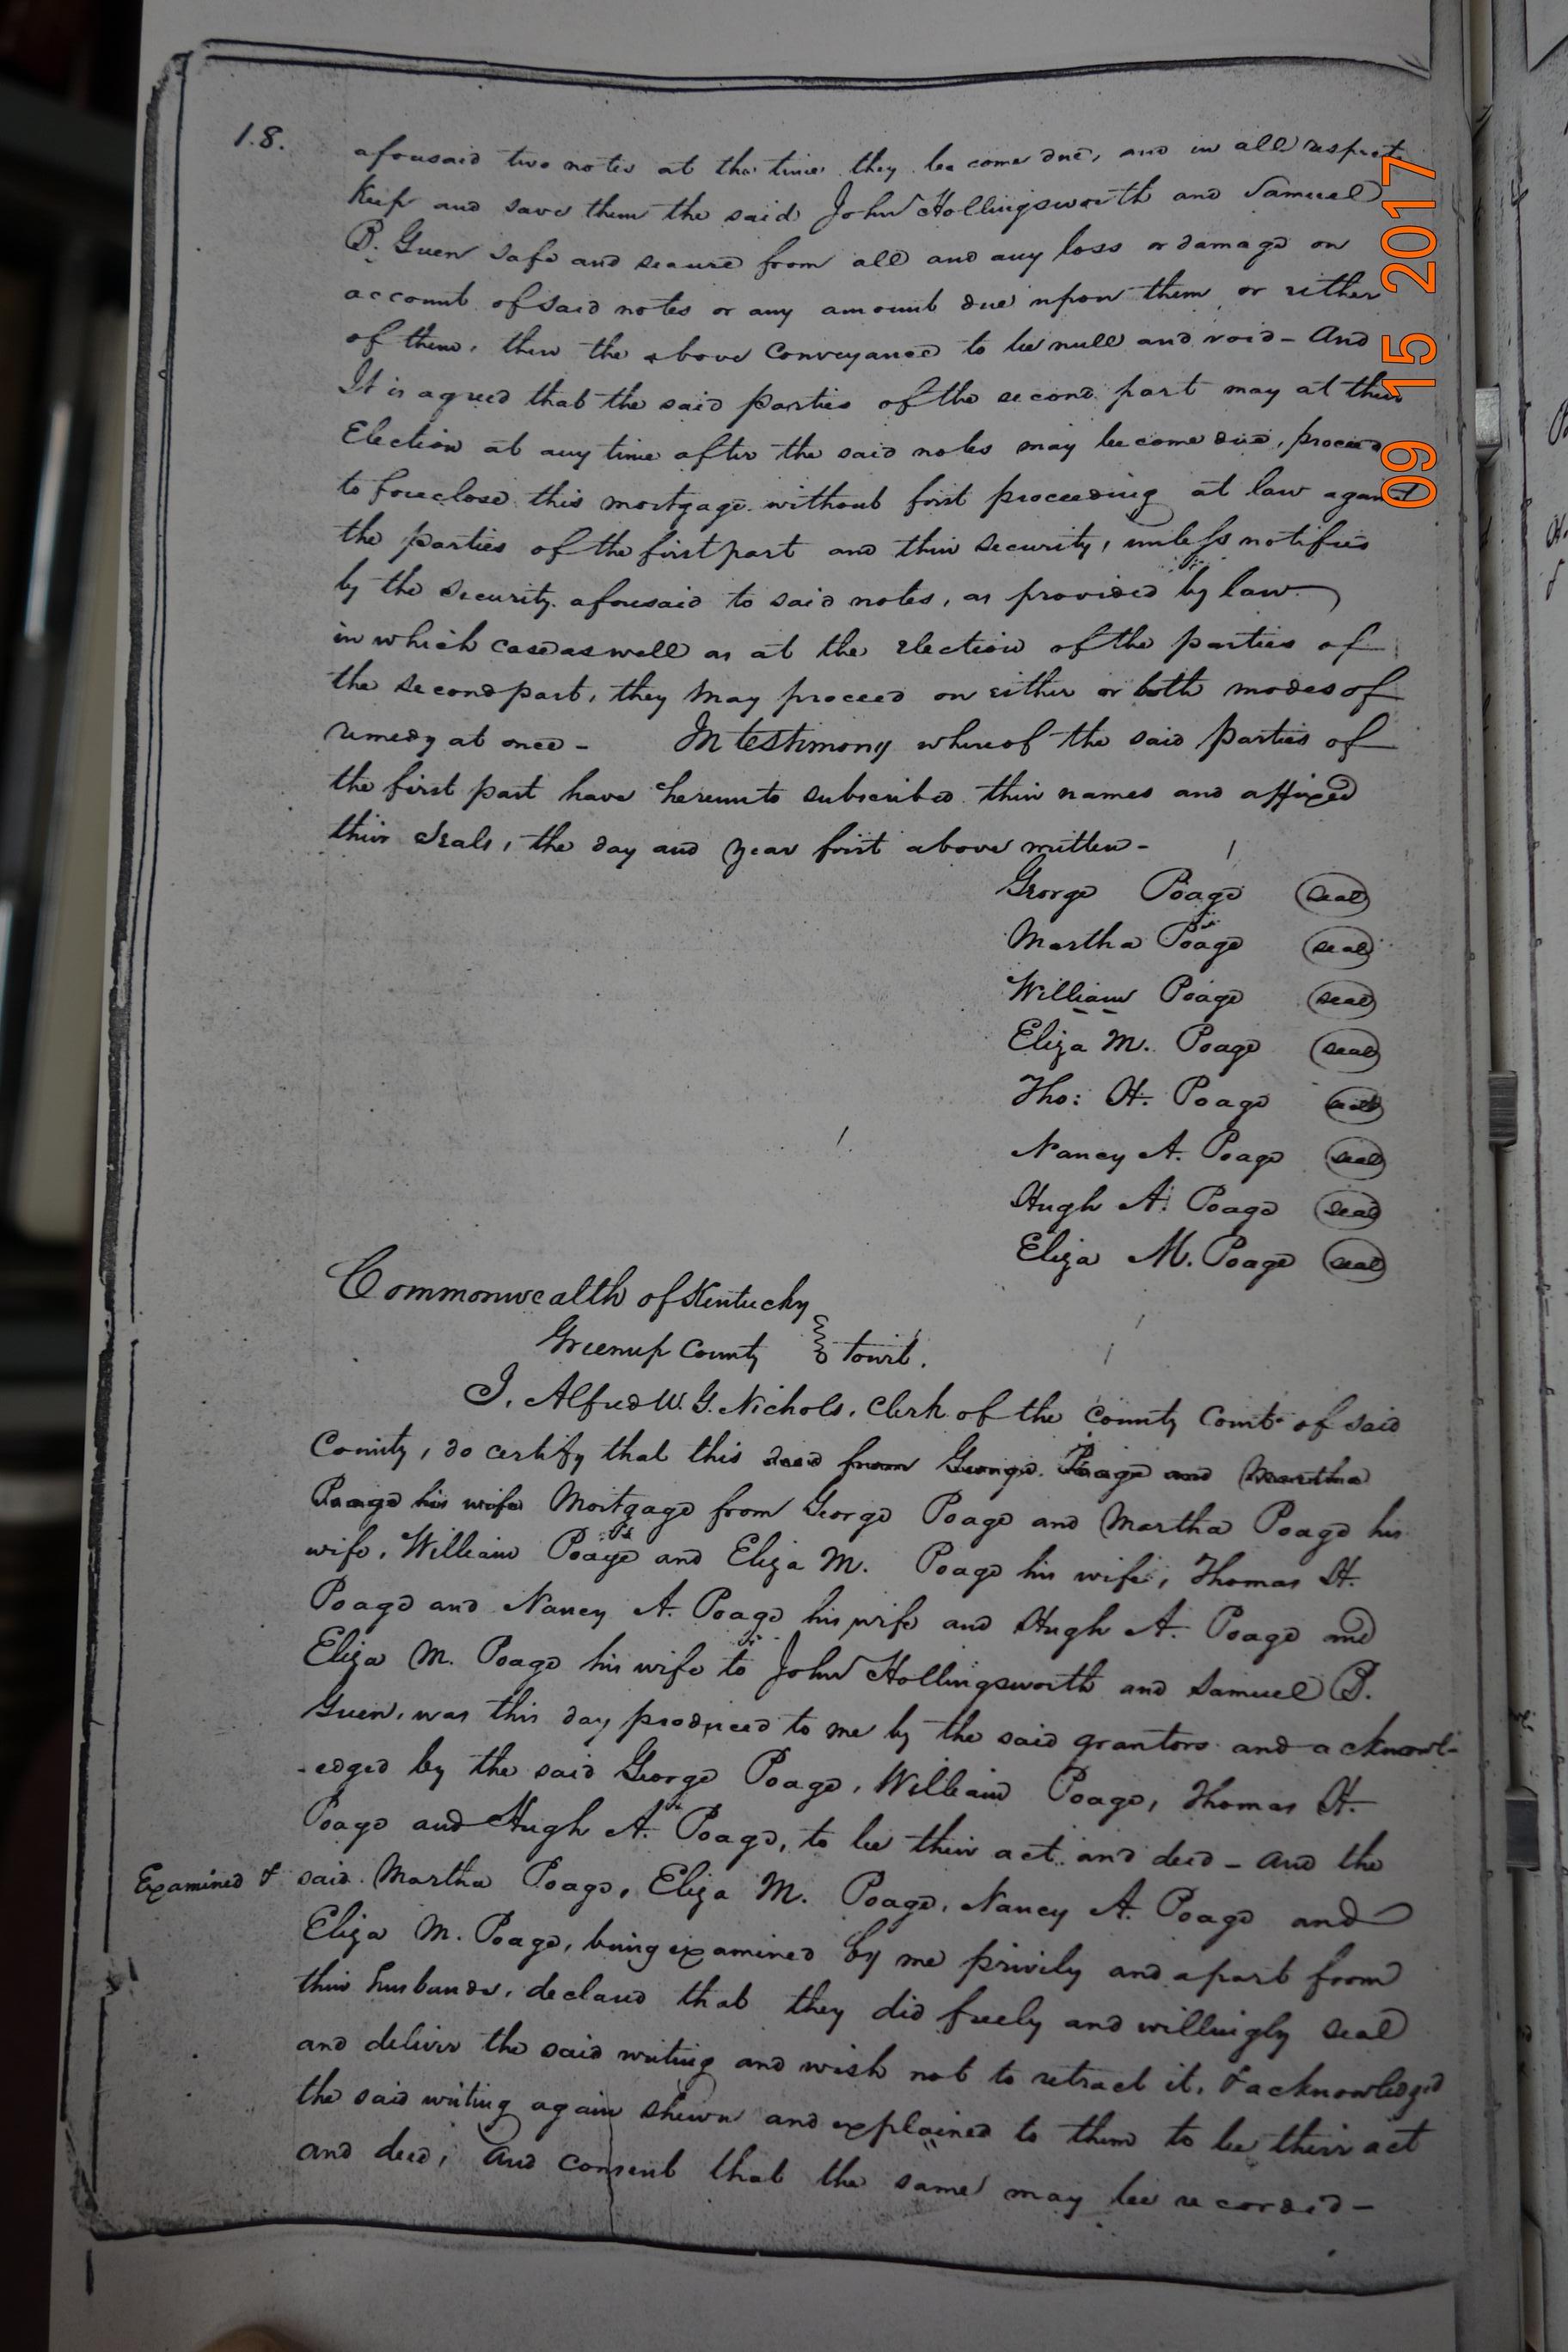 18.
aforesaid two notes at the time they become due, and in all respects
Keep and save them the said John Hollingsworth and Samuel
B. Guen safe and secure from all and any loss or damage on
account of said notes or any amount due upon them or either
of them, then the above Conveyance to be null and void - And
It is agreed that the said parties of the second part may at their
Election at any time after the said notes may become due, proceed
to foreclose this mortgage without first proceeding at law against
the parties of the first part and their security, unless notified
by the security aforesaid to said notes, as provided by law
in which case as well as at the election of the parties of
the second part, they may proceed on either or both modes of
remedy at once - In testimony whereof the said parties of
the first part have hereunto subscribed their names and affixed
their seals, the day and year first above written -
George Poage seal
Martha Poage seal
William Poage seal
Eliza M. Poage seal
Tho: H. Poage seal
Nancy A. Poage seal
Hugh A. Poage seal
Eliza M. Poage seal
Commonwealth of Kentucky
Greenup County towit.
I, Alfred W. G. Nichols, Clerk of the County Court of said
County, do certify that this deed from George Poage and Martha
Poage his wife Mortgage from George Poage and Martha Poage his
wife, William Poage and Eliza M. Poage his wife, Thomas H.
Poage and Nancy A. Poage his wife and Hugh A. Poage and
Eliza M. Poage his wife to John Hollingsworth and Samuel B.
Guen, was this day produced to me by the said grantors and acknowl-
-edged by the said George Poage, William Poage, Thomas H.
Poage and Hugh A. Poage, to be their act and deed - and the
Examined & said Martha Poage, Eliza M. Poage, Nancy A. Poage and
Eliza M. Poage, being examined by me privily and apart from
their husbands, declared that they did freely and willingly seal
and deliver the said writing and wish not to retract it, & acknowledged
the said writing again shewn and explained to them to be their act
and deed, and consent that the same may be recorded -
09 15 2017